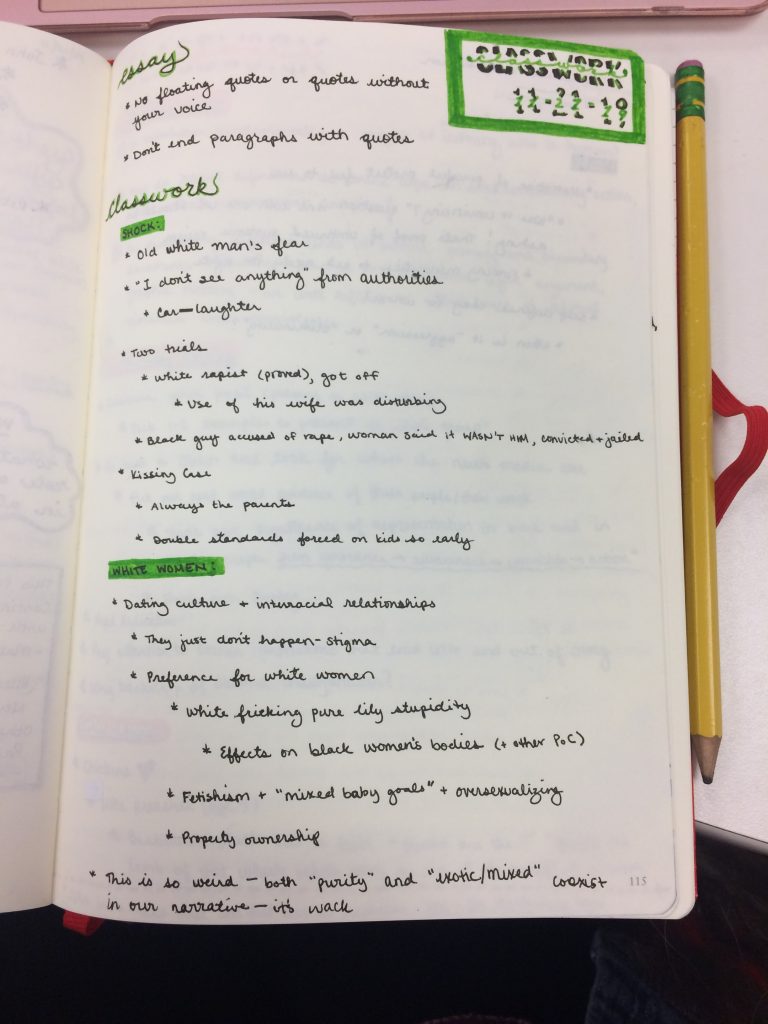 essay
CLASSWORK
classwork
* No floating quotes or quotes without
your voice
* Don't end paragraphs with quotes
classwork
SHOCK:
* Old white man's fear
* "I don't see anything" from authorities
* Car—laughter
* Two trials
* White rapist (proved), got off
* Use of his wife was disturbing
* Black guy accused of rape, woman said it WASN'T HIM, convicted + jailed
* Kissing Case
* Always the parents
* Double standards forced on kids so early
WHITE WOMEN:
* Dating culture + interracial relationships
* They just don't happen - stigma
* Preference for white women
* White fricking pure lily stupidity
* Effects on black women's bodies (+ other PoC)
* Fetishism + "mixed baby goals" + oversexualizing
* Property ownership
* This is so weird — both "purity" and "exotic/mixed" coexist
in our narrative — it's wack
115